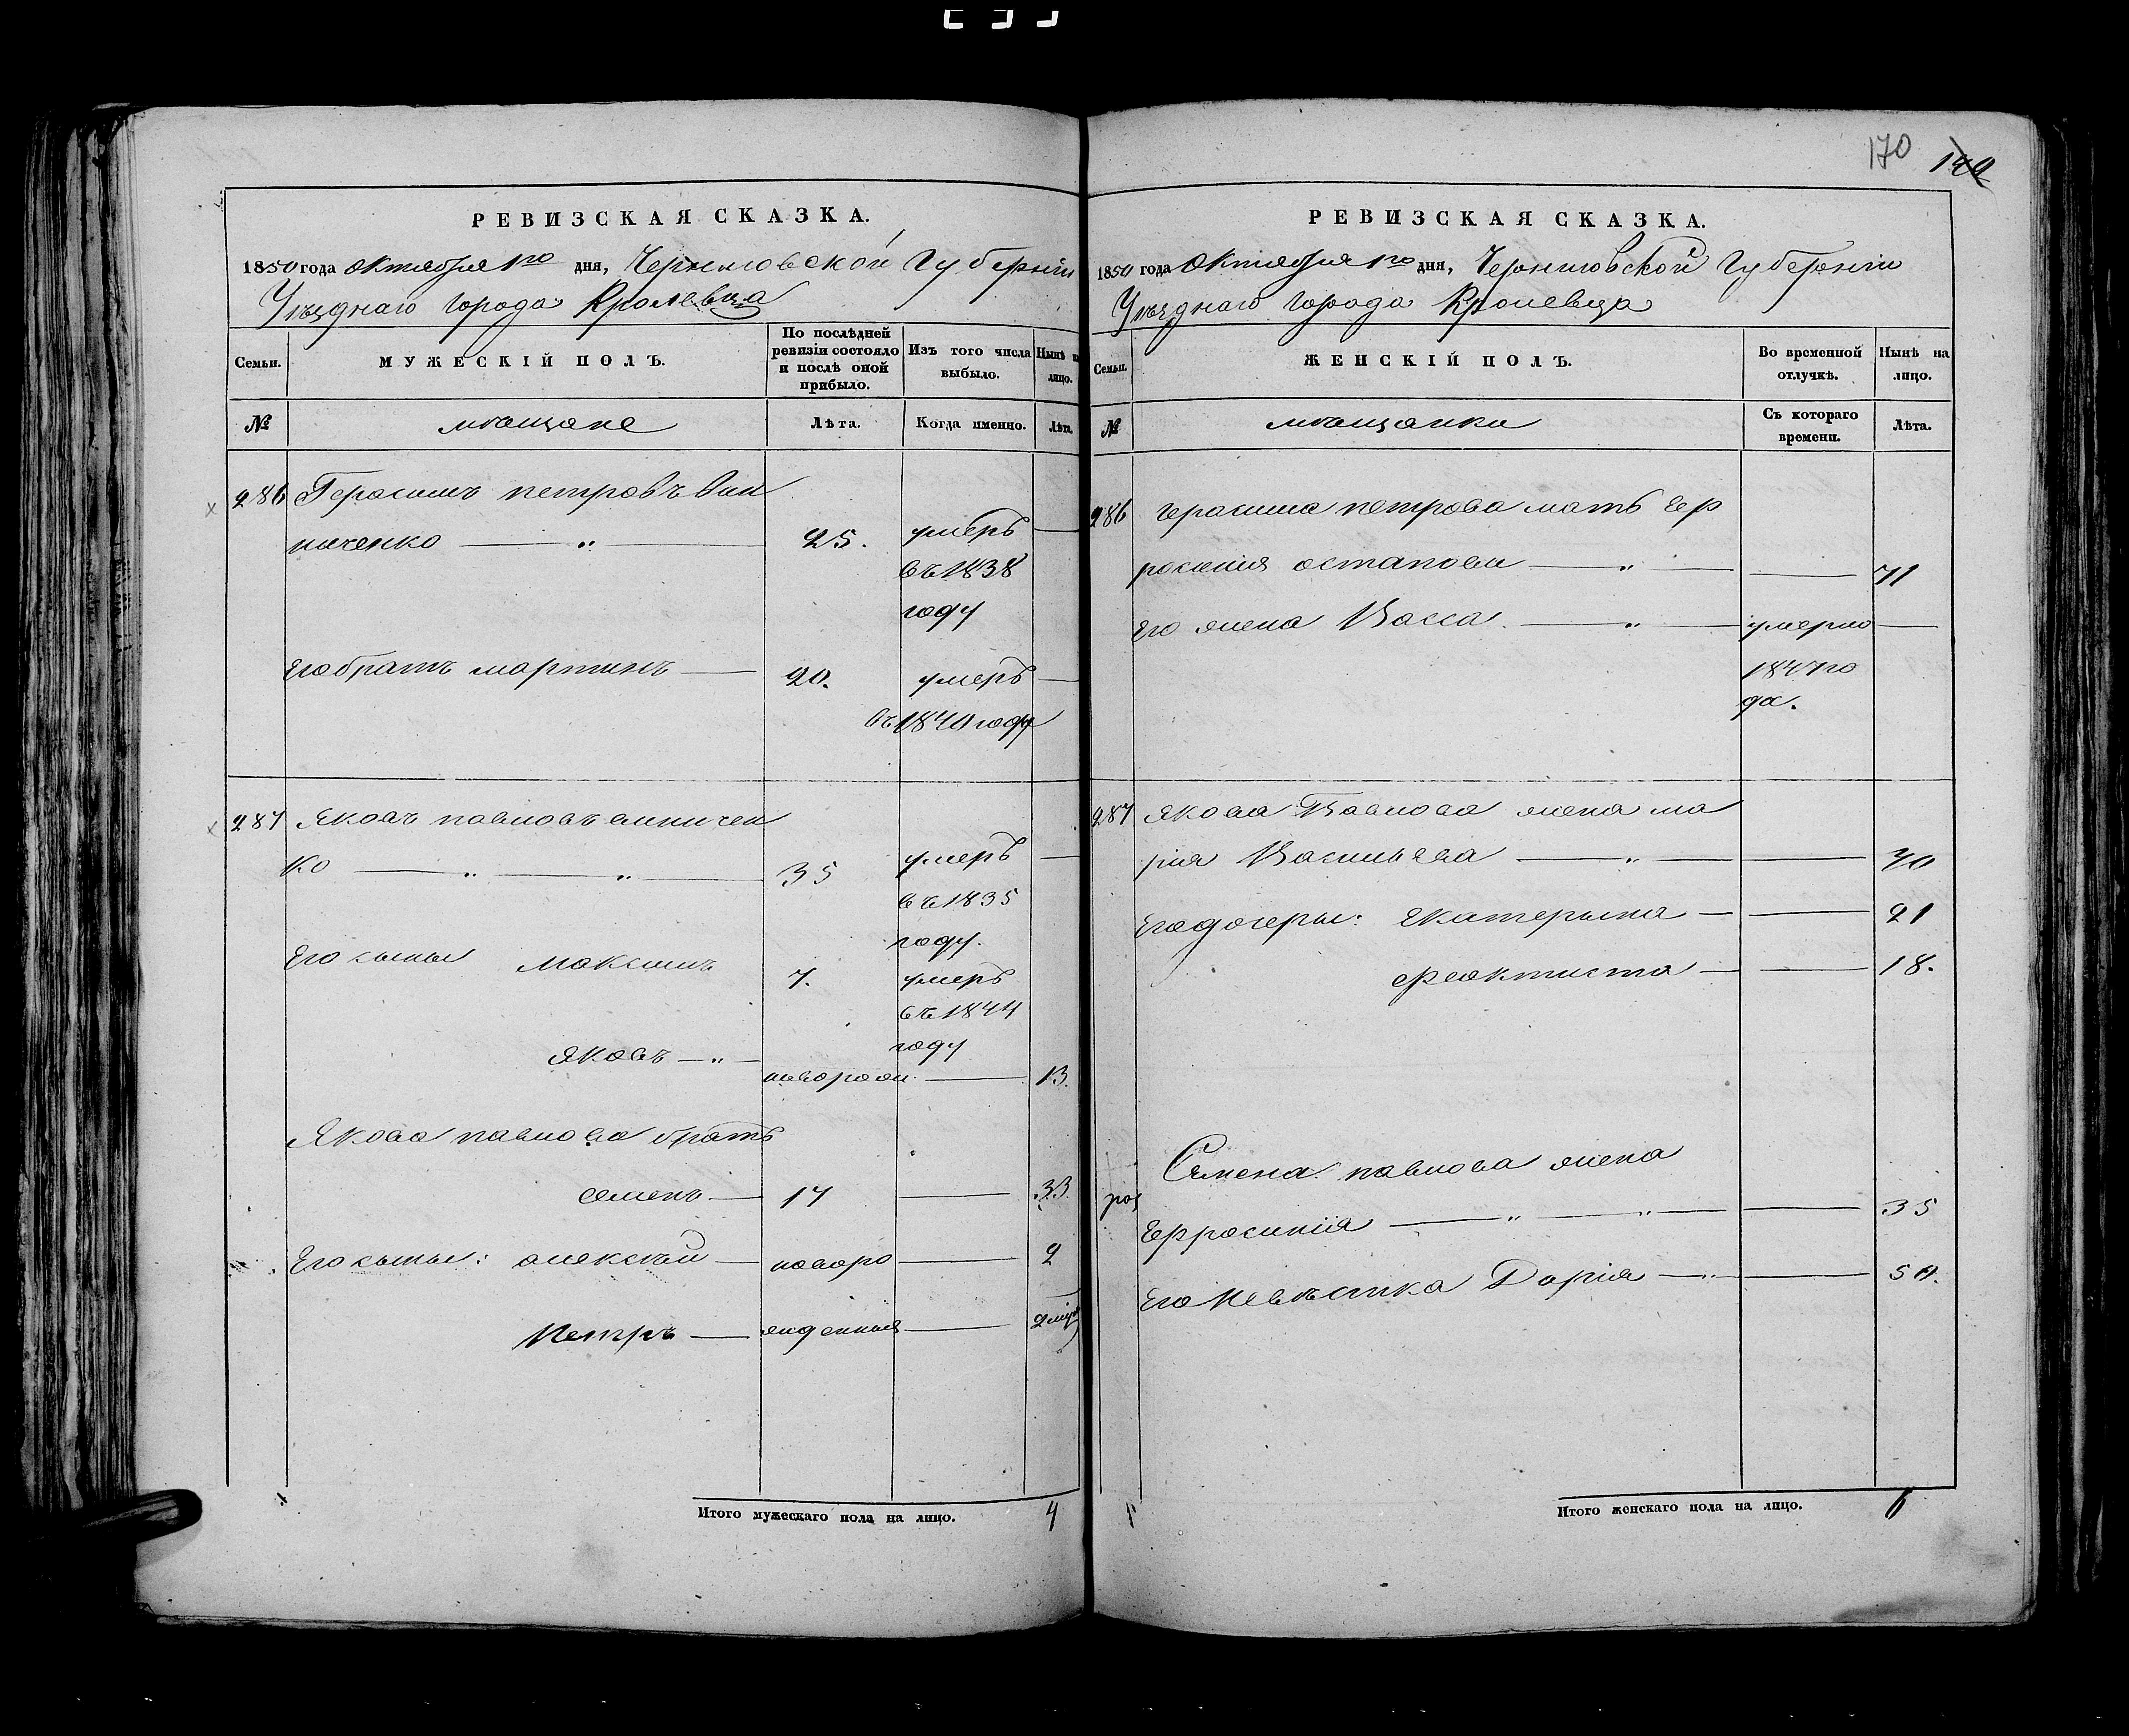 170 149
РЕВИЗСКАЯ СКАЗКА.
1850 года октября 1го дня, Черниговской Губернии
Уезднаго города Кролевца
Семьи.
МУЖЕСКІЙ ПОЛЪ.
По послѣдней ревизіи состояло и послѣ оной прибыло.
Изъ того числа выбыло.
Нынѣ на лицо.
№
мѣщане
Лѣта.
Когда именно.
Лѣта.
286 Герасимъ петровъ Вин
ниченко 25. умеръ
въ 1838
году
Его братъ мартинъ 20. умеръ
въ 1840 году
287 Яковъ павловъ винничен
ко 35 умеръ
въ 1835
году.
Его сыны Максимъ 7. умеръ
въ 1844
году
Яковъ новорож. 13.
Якова павлова братъ
семенъ 17 33.
Его сыны: алексѣй новоро 2
Петръ жденныя
Итого мужескаго пола на лицо. 4
РЕВИЗСКАЯ СКАЗКА.
1850 года Октября 1го дня, Черниговской Губернии
Уезднаго города Кролевца
Семьи.
ЖЕНСКІЙ ПОЛЪ.
Во временной отлучкѣ.
Нынѣ на лицо.
№
мѣщанки
Съ котораго времени.
Лѣта.
286 Герасима петрова мать Еф
росинія остапова 71
Его жена Васса умерла
1847 го
да.
287 Якова Павлова жена ма
рия Васильева 40
Его дочеры: Екатерына 21
Феоктиста 18.
Семена павлова жена
Ефросинія 35
Его Невѣстка Дарія 50.
Итого женскаго пола на лицо. 6